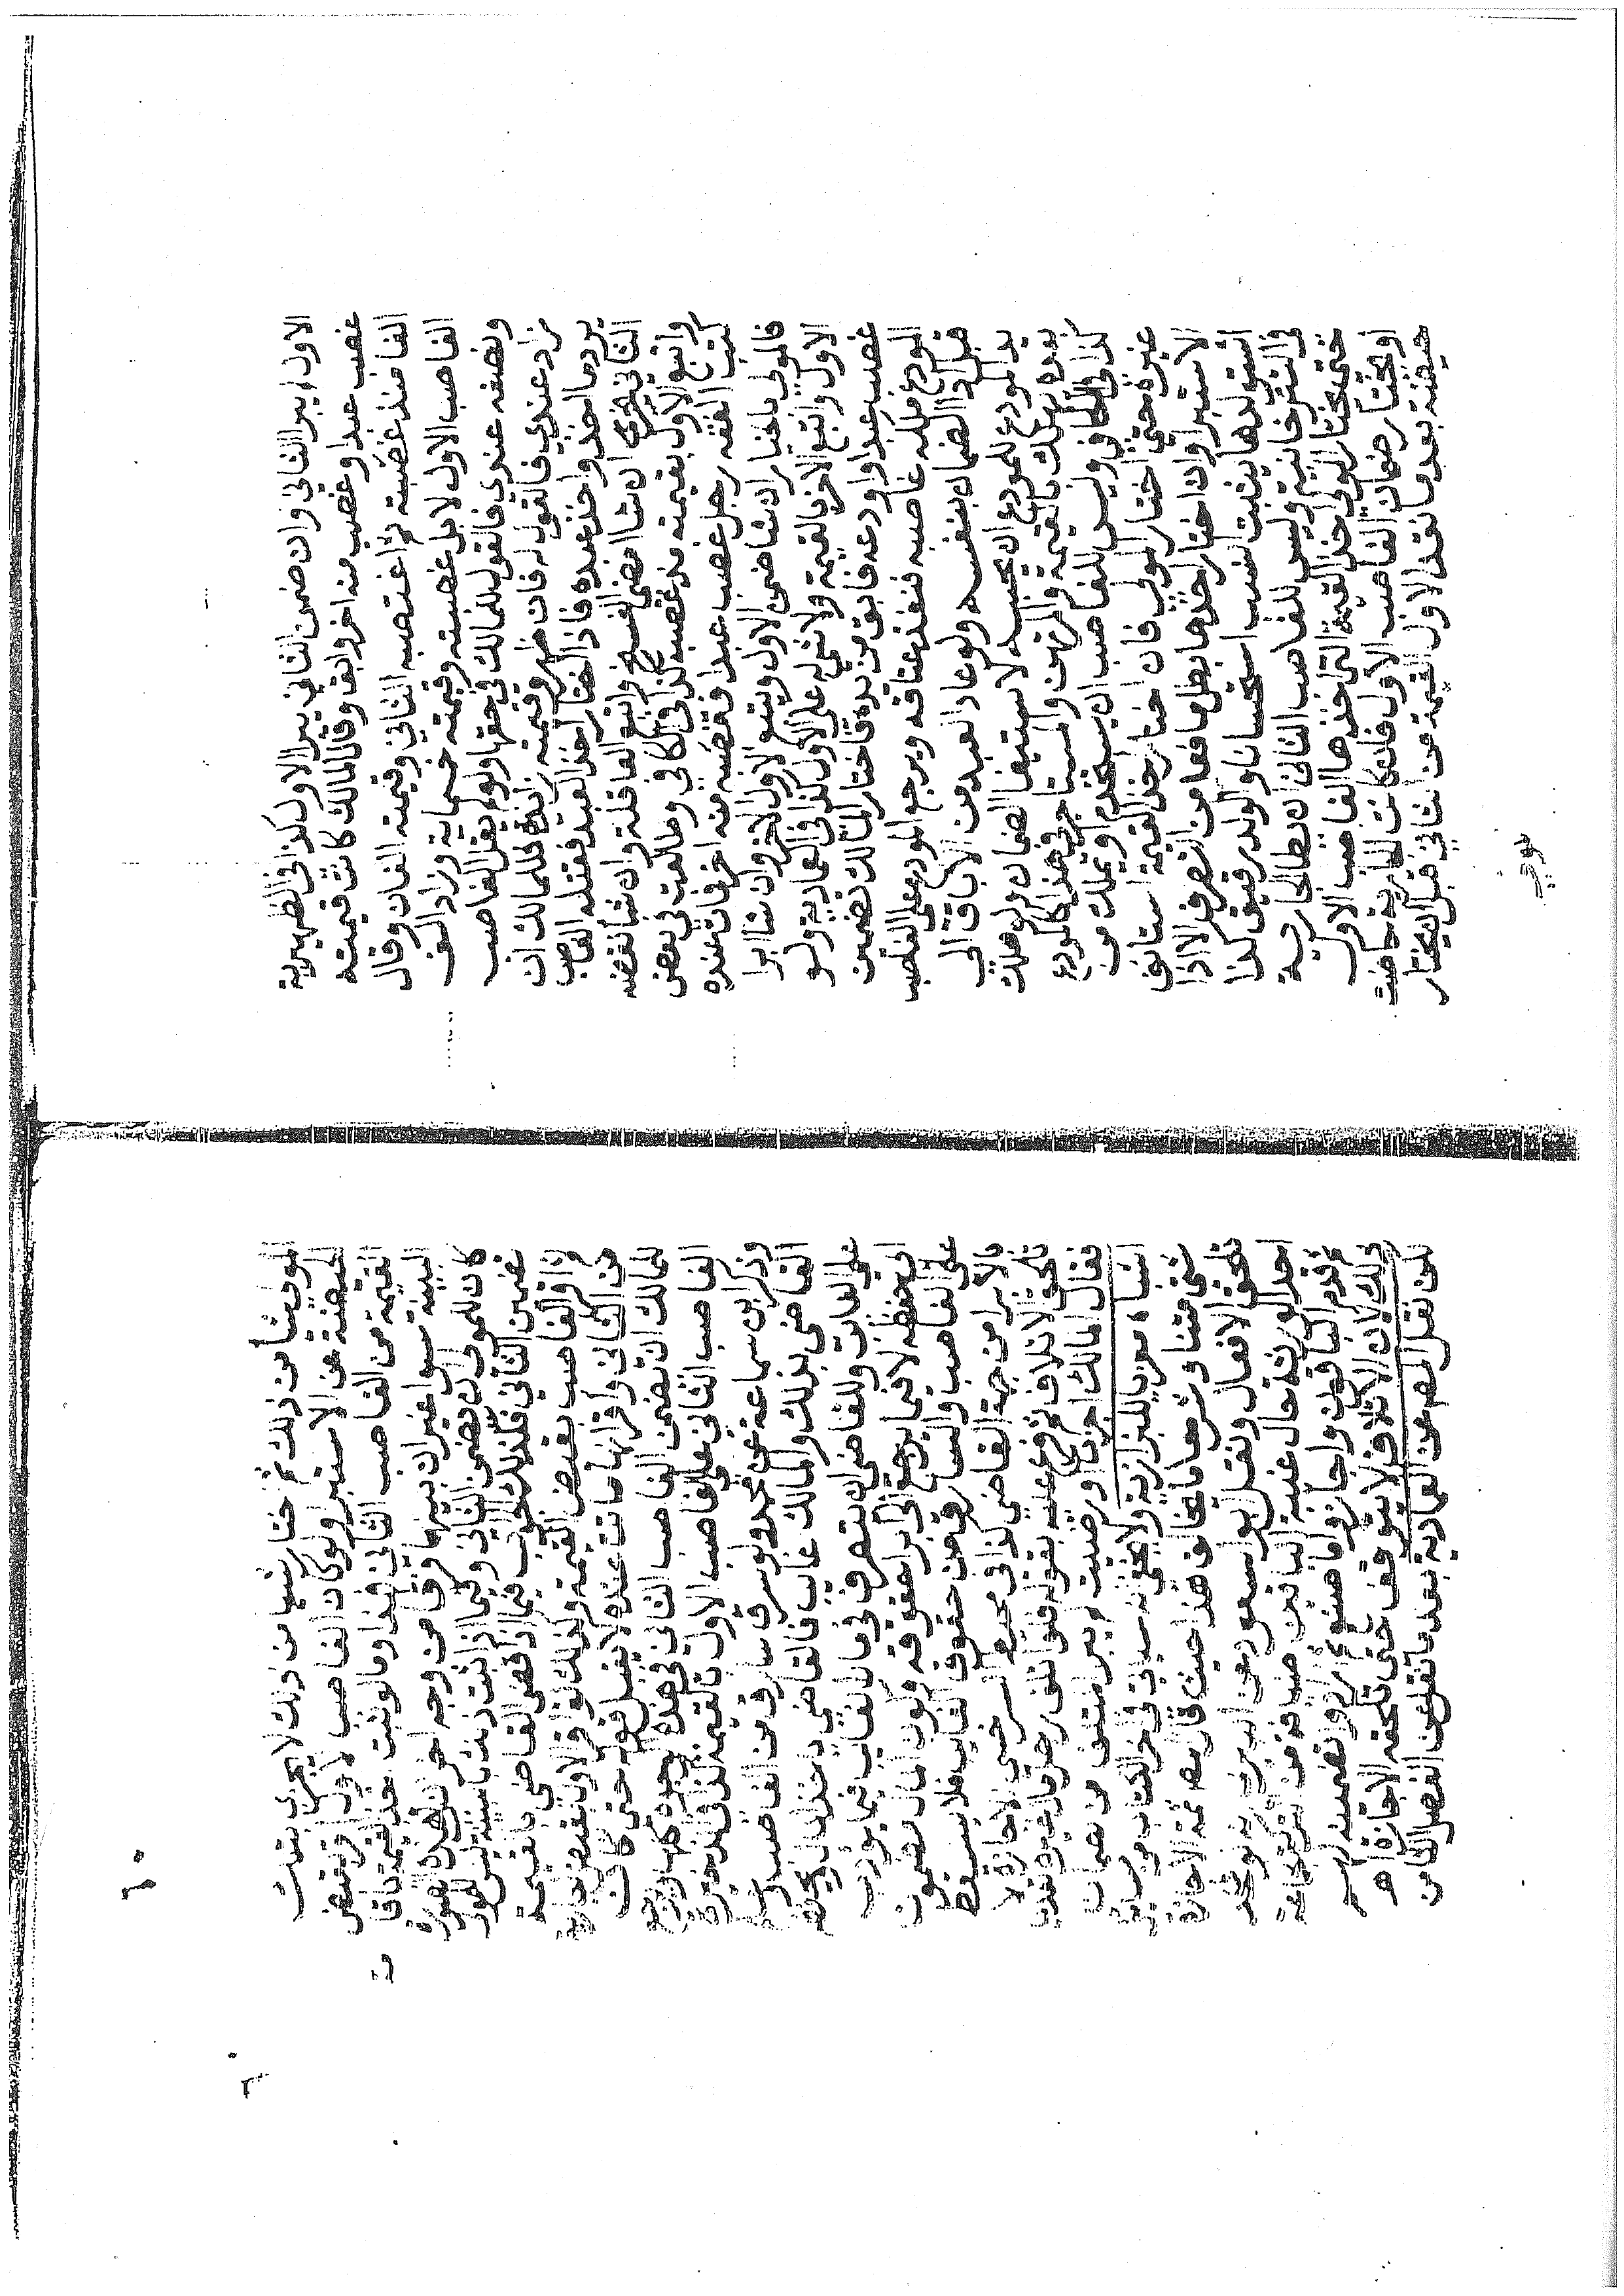 الاول لم يبرا الثاني وان ضمن الثاني يبرا الاول كذا في الظهيرية
غصب عبدا وغصب منه اخر وابق وقال المالك كانت قيمته
الفا منذ غصبته ثم اغتصبه الثاني وقيمته الفان وقال
الغاصب الاول لا بل غصبته وقيمته خمسماية وزاد الف
ونصفه عندي فالقول للمالك في حقها ولو لم يقل الغاصب
زاد عندي فالقول له فان ظهر وقيمته زايدة فللمالك ان
يرد ما اخذ واخذ عبده فاذا اختار اخذ العبد فقتله الغاصب
الثاني يخير ان شا امضى الفسخ واتبع العاقلة وان شا نقضه
واتبع الاول بقيمته يوم غصب كذا في الكافي وطالعت في بعض
كتب الفقه رجل غصب عبدا فغصبه منه اخر فمات عنده
فالمولى بالخيار ان شا ضمن الاول ويتبع الاول الاخر وان شا ابرا
الاول واتبع الاخر بالقيمة ولا شي له على الاول كذا في العمادية ولو
غصب عبدا واودعه فابق من يده فاختار المالك تضمين
المودع ملكه غاصبه فنفذ عتاقه ويرجع المودع على الغاصب
قبل ادا الضمان بنفسه ولو عاد العبد من الاباق الى
يد المودع للمودع ان يحبسه لاستيفا الضمان ولو هلك
بعده يهلك بالقيمة والمرتهن والمستاجر في هذا كالمودع
كذا في الكافي وليس للغاصب ان يستخدم او يملك من
غيره حتى اختار المولى فان اختار اخذ القيمة استانف
الاستبرا وان اختار اخذها بطل ما فعل من التصرف الا اذا
استولدها يثبت النسب استحسانا والولد رقيق كذا
في التترخانية وليس للغاصب الثاني ان يطا الجارية
حتى يختار المولى اخذ القيمة التي اخذها الغاصب الاول
او يختار ضمان الغاصب الاول فلو كانت الجارية حاضت
حيضة بعد ما نقد الاول القيمة من الثاني قبل ان يختار
المولى
المولى شيأ من ذلك ثم اختار شيا من ذلك لا يجزي بتلك
الحيضة عن الاستبرا ولو كان الغاصب الاول اقر بقبض
القيمة من الغاصب الثاني فهذا وما لو ثبت اخذ القيمة باقا
البينة سوا غير ان بينهما فرقا من وجه اخر ان في هذه الصورة
كان للمولى ان يضمن الثاني وفيما اذا ثبت ذلك بالبينة ليس للمولى
تضمين الثاني فكذلك الجواب فيما اذا قضى القاضي بالقيمة
واقر الغاصب بقبض القيمة وكذلك لو اقر الاول بقبض الجارية
من الثاني واقر انها ماتت عنده لا يقبل قوله حتى كان
للمالك ان يضمن الغاصب الثاني في هذه الوجوه كلها ويرجع
الغاصب الثاني على الغاصب الاول بالقيمة كذا في الذخيرة
وذكر ابن سماعة عن محمد ولو سرق سارق من الغاصب
القاضي بذلك والمالك غايب فالقاضي ياخذ المال ويحفظه
على الغايب وللقاضي ان يتصرف في مال الغايب فيما يوول
الى حفظه لا فيما يرجع الى ابرا حقوقه وكون المال مضمون
على الغاصب والسارق من حقوق الغايب فلا يسقط
بالابرا من جهة القاضي كذا في محيط السرخسي الاجازة لا
تلحق الاتلاف ثم فرع عليه بقوله فلو اتلف رجل مال غيره تعديا
فقال المالك اجزت او رضيت لم يبرا المتلف من ضمان
اشباه معزيا للبزازية ولا يخفى انه سياتي في اخر الكتاب من مسايل
شتى متنا وشرحا ما يخالف هذا حيث قال ثمة الاجازة
تلحق الافعال ونقل ابو السعود عن الديري
احد الورثة حال غيبة الباقين ضيافة من التركة
ثم قدم الباقون واجازوا ما صنع ثم ارادوا تضمينه لهم
ذلك لان الاتلاف لا يتوقف حتى تلحقه الاجازة اه
لكن نقل المص عن العمادية بعد ما نقل عن الفصل الثامن